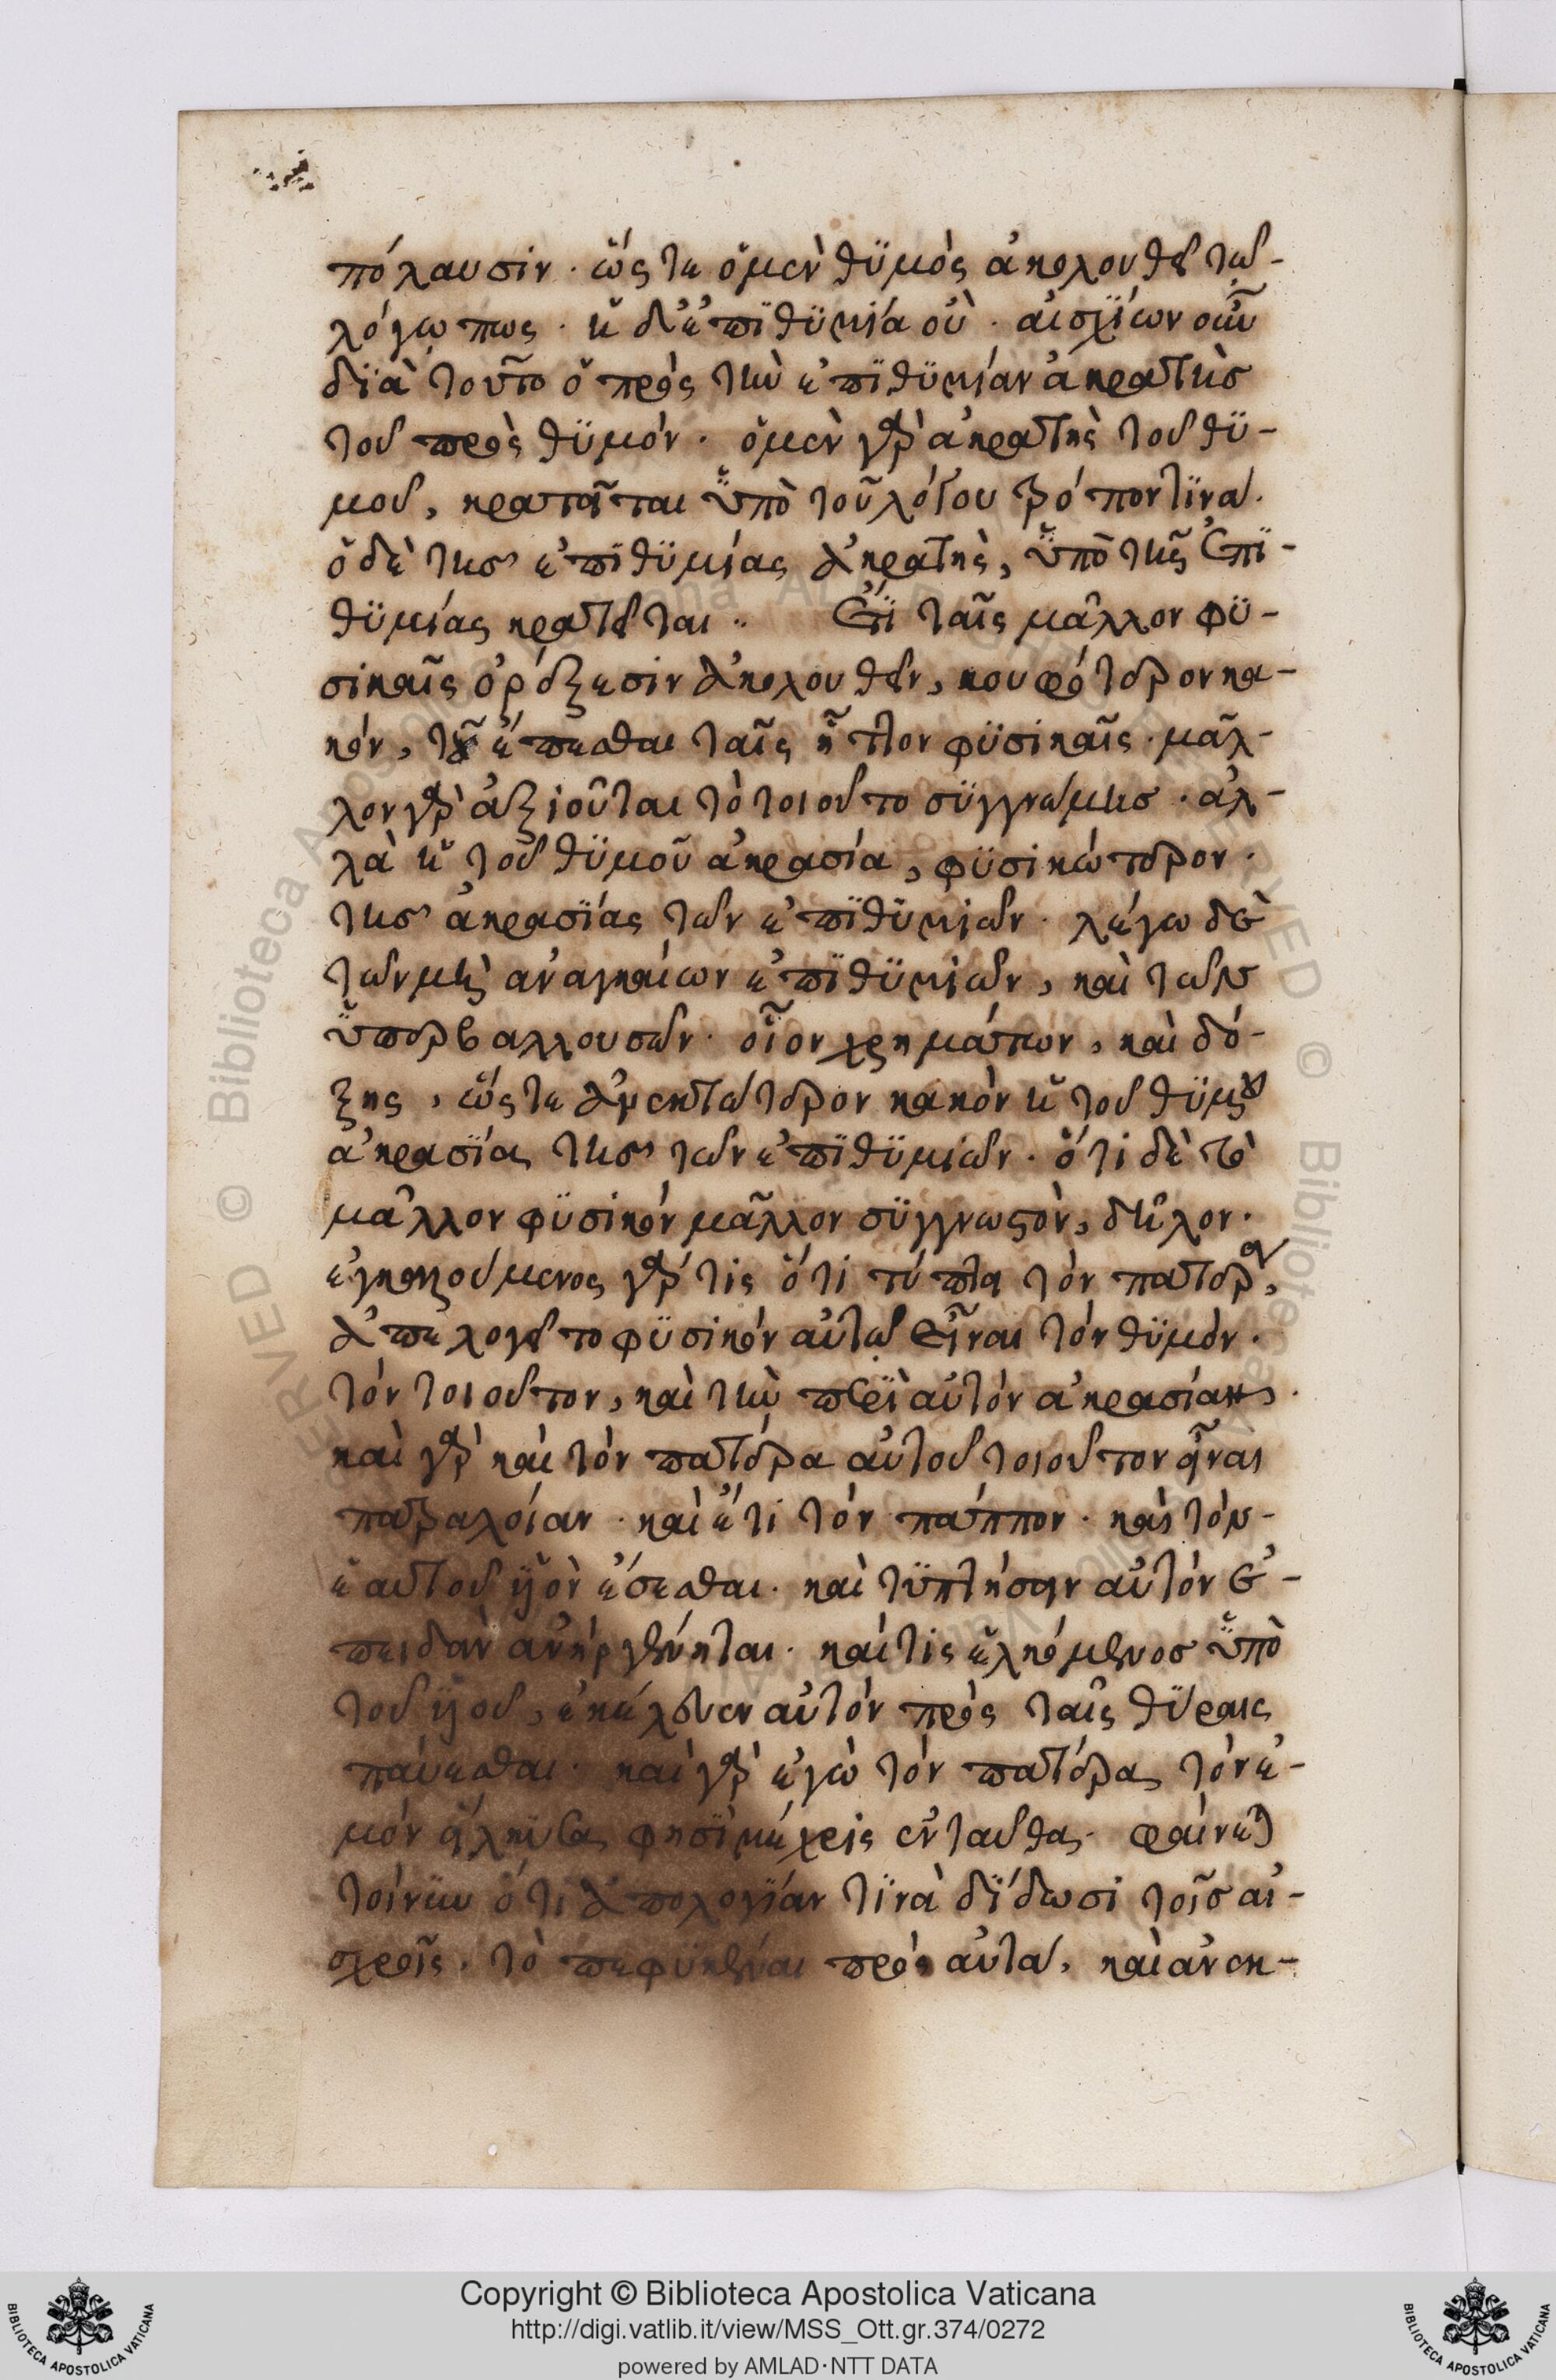 πόλαυσιν· ὥστε ὁ μὲν θϋμὸς ἀκολουθεῖ τῷ
λόγω πως· ἡ δ' ἐπϊθϋμία οὐ· αἰσχΐων οὖν
δϊὰ τοῦτο ὁ πρὸς τὴν ἐπϊθϋμίαν ἀκρατὴσ
τοῦ πρὸς θϋμόν· ὁ μὲν γὰρ ἀκρατὴς τοῦ θϋ-
μοῦ, κρατεῖται ὑπὸ τοῦ λόγου τρόπον τϊνά.
ὁ δὲ τῆσ ἐπϊθϋμίας ἀκρατὴς, ὑπὸ τῆς ἐπϊ-
θϋμίας κρατεῖται·· Ἔτϊ ταῖς μᾶλλον φϋ-
σικαῖς ὀρέξεσιν ἀκολουθεῖν, κουφότερον κα-
κόν, τοῦ ἕπεσθαι ταῖς ἧττον φϋσικαῖς· μᾶλ-
λον γὰρ ἀξιοῦται τὸ τοιοῦτο σϋγγνώμησ· ἀλ-
λὰ ἡ τοῦ θϋμοῦ ἀκρασία, φϋσικώτερον·
τῆσ ἀκρασΐας τῶν ἐπϊθϋμιῶν· λέγω δὲ
τῶν μὴ ἀναγκαίων ἐπϊθϋμιῶν, καὶ τῶν
ὑπερβαλλουσῶν· οἷον χρημάτων, καὶ δό-
ξης, ὥστε ἀνεκτώτερον κακὸν ἡ τοῦ θϋμοῦ
ἀκρασΐα, τῆσ τῶν ἐπϊθϋμιῶν· ὅτι δὲ τὸ
μᾶλλον φϋσικόν μᾶλλον σϋγγνωστὸν, δῆλον·
ἐγκαλούμενος γάρ τις ὅτι τύπτει τὸν πατέρα,
ἀπελογεῖτο φϋσικόν αὐτῷ εἶναι τόν θϋμόν·
τόν τοιοῦτον, καὶ τὴν περϊ αὐτόν ἀκρασίαν,
καὶ γὰρ καὶ τόν πατέρα αὐτοῦ τοιοῦτον εἶναι
πατραλοίαν· καὶ ἔτι τόν πάππον· καὶ τὸν
ἑαυτοῦ ὑϊὸν ἔσεσθαι· καὶ τϋπτήσειν αὐτόν ἐ-
πειδὰν ἀνήρ γένηται· καί τις ἑλκόμενοσ ὑπὸ
τοῦ ὑϊοῦ, ἐκέλευεν αὐτόν πρὸς ταῖς θϋραις
παύεσθαι· καὶ γὰρ ἐγὼ τόν πατέρα, τόν ἐ-
μόν εἵλκυσα, φησΐ μέχρις ἐνταῦθα· φαίνεται
τοίνυν ὅτι ἀπολογϊαν τϊνὰ δΐδωσι τοῖσ αἰ-
σχροῖς· τὸ πεφυκέναι πρὸς αὐτά, καὶ ἀνεκ-
Copyright © Biblioteca Apostolica Vaticana
http://digi.vatlib.it/view/MSS_Ott.gr.374/0272
powered by AMLAD·NTT DATA